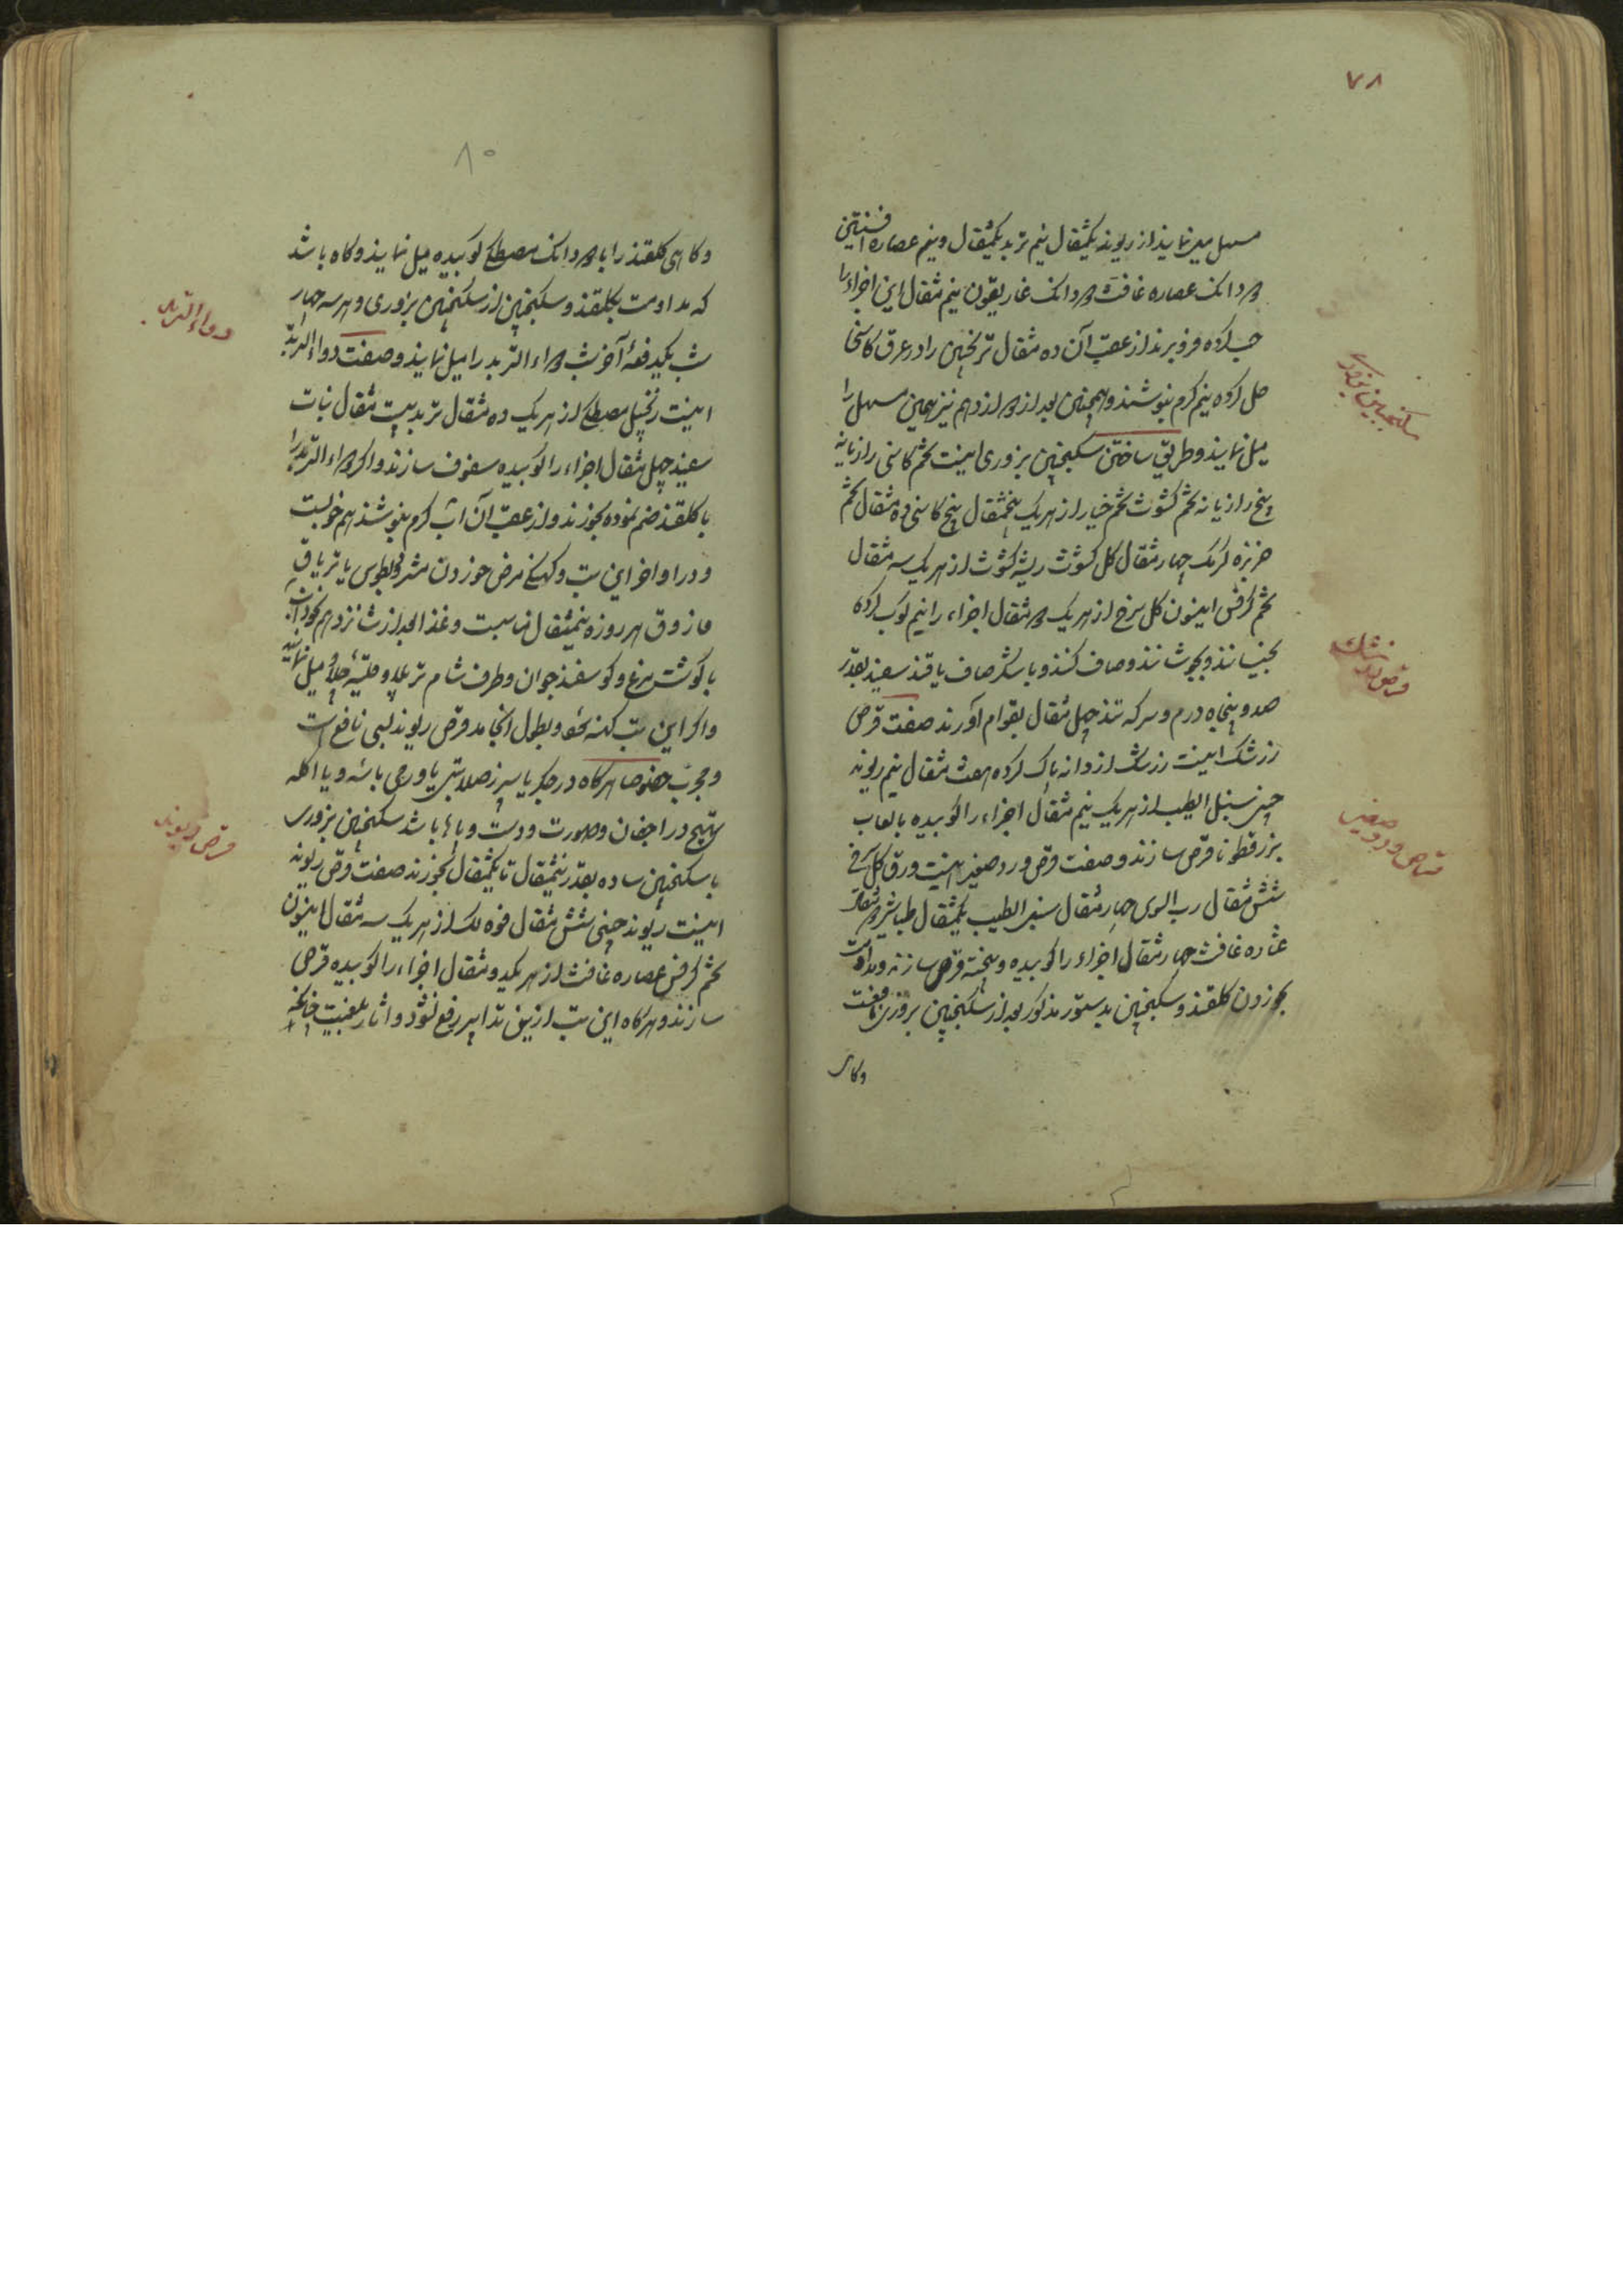 ۷۸
مسهل میل نمایند از ریوند یکمثقال نیم تربد یکمثقال و نیم عصاره افسنتین
دو دانک عصاره غافث دو دانک غاریقون نیم مثقال این اجزاء را
حب کرده فرو برند از عقب آن ده مثقال ترنجبین را در عرق کاسنی
حل کرده نیم کرم بنوشند و همچنین بعد از دوازدهم نیز همین مسهل را
میل نمایند و طریق ساختن سکنجبین بزوری اینست تخم کاسنی رازیانه
بیخ رازیانه تخم کشوث تخم خیار از هر یک پنجمثقال بیخ کاسنی ده مثقال تخم
خربزه کرمک چهار مثقال کل کشوث ریشه کشوث از هر یک سه مثقال
تخم کرفس انیسون کل سرخ از هر یک دو مثقال اجزاء را نیم کوب کرده
بخیسانند و بجوشانند و صاف کنند و با شکر صاف یا قند سفید بقدر
صد و پنجاه درم و سرکه تند چهل مثقال بقوام آورند صفت قرص
زرشک اینست زرشک از دانه پاک کرده هفت مثقال نیم ریوند
چینی سنبل الطیب از هر یک نیم مثقال اجزاء را کوبیده بالعاب
بزرقطونا قرص سازند و صفت قرص ورد صغیر اینست ورق کل سرخ
شش مثقال رب السوس چهار مثقال سنبل الطیب یکمثقال طباشیر دو مثقال
عصاره غافث چهار مثقال اجزاء را کوبیده و بیخته قرص سازند و مداومت
بخوردن کلقند و سکنجبین بدستور مذکور بعد از سکنجبین بزوری نافعست
وکاهی
سکنجبین بزوری
قرص زرشک
قرص ورد صغیر
۸۰
وکاهی کلقند را با دو دانک مصطکی کوبیده میل نمایند و کاه باشد
که مداومت بکلقند و سکنجبین از سکنجبین بزوری و هر سه چهار
شب یکدفعه آخر شب دواء التربد را میل نمایند و صفت دواء التربد
اینست زنجبیل مصطکی از هر یک ده مثقال تربد بیست مثقال نبات
سفید چهل مثقال اجزاء را کوبیده سفوف سازند و اکر دواء التربد را
با کلقند ضم نموده بخورند و از عقب آن آب کرم بنوشند هم خوبست
و در اواخر این تب و کهنکی مرض خوردن مثرودیطوس یا تریاق
فاروق هر روزه نیمثقال مناسبست و غذا بعد از شانزدهم نخودآب
با کوشت مرغ و کوسفند جوان و طرف شام تر پلاو و قلیه چلاو میل نمایند
و اکر این تب کهنه شود و بطول انجامد قرص ریوند بسی نافع است
و مجرب خصوصا هرکاه در جکر یا سپرز صلابتی یا ورمی باشد و یا آنکه
تهبج در اجفان و صورت و دست و پاها باشد سکنجبین بزوری
یا سکنجبین ساده بقدر نیمثقال تا یکمثقال بخورند صفت قرص ریوند
اینست ریوند چینی شش مثقال فوه لک از هر یک سه مثقال انیسون
تخم کرفس عصاره غافث از هر یک دو مثقال اجزاء را کوبیده قرص
سازند و هرکاه این تب از این تدابیر رفع نشود و اثار عفنیت چنانکه
دواء التربد
قرص ریوند